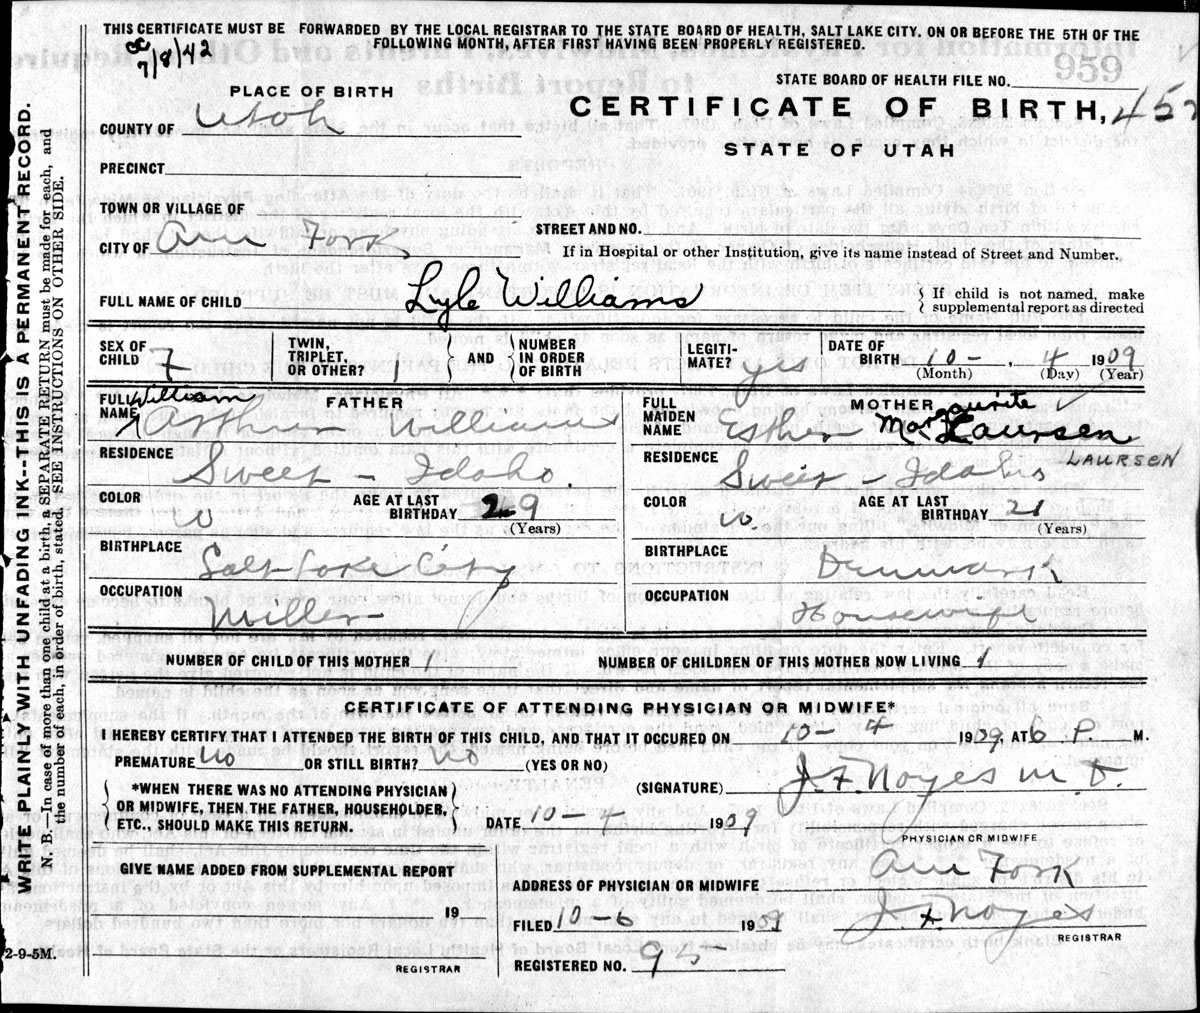 THIS CERTIFICATE MUST BE FORWARDED BY THE LOCAL REGISTRAR TO THE STATE BOARD OF HEALTH, SALT LAKE CITY, ON OR BEFORE THE 5TH OF THE
FOLLOWING MONTH, AFTER FIRST HAVING BEEN PROPERLY REGISTERED.
7/8/42
959
STATE BOARD OF HEALTH FILE NO.
PLACE OF BIRTH
CERTIFICATE OF BIRTH, 457
STATE OF UTAH
COUNTY OF Utah
PRECINCT
TOWN OR VILLAGE OF
CITY OF Am Fork
STREET AND NO.
If in Hospital or other Institution, give its name instead of Street and Number.
FULL NAME OF CHILD Lyle Williams
{ If child is not named, make
supplemental report as directed
SEX OF CHILD F
TWIN, TRIPLET, OR OTHER? 1 } AND { NUMBER IN ORDER OF BIRTH
LEGITIMATE? yes
DATE OF BIRTH 10- , 4 1909
(Month) (Day) (Year)
FATHER
FULL NAME William Arthur Williams
RESIDENCE
Sweet - Idaho
COLOR W
AGE AT LAST BIRTHDAY 29
(Years)
BIRTHPLACE
Salt Lake City
OCCUPATION
Miller
MOTHER
FULL MAIDEN NAME Esther Laursen
LAURSEN
RESIDENCE
Sweet - Idaho
COLOR W.
AGE AT LAST BIRTHDAY 21
(Years)
BIRTHPLACE
Denmark
OCCUPATION
Housewife
NUMBER OF CHILD OF THIS MOTHER 1
NUMBER OF CHILDREN OF THIS MOTHER NOW LIVING 1
CERTIFICATE OF ATTENDING PHYSICIAN OR MIDWIFE*
I HEREBY CERTIFY THAT I ATTENDED THE BIRTH OF THIS CHILD, AND THAT IT OCCURED ON 10-4 1909 AT 6 P M.
PREMATURE No OR STILL BIRTH? No (YES OR NO)
(SIGNATURE) J F Noyes M D.
PHYSICIAN OR MIDWIFE
{ *WHEN THERE WAS NO ATTENDING PHYSICIAN
OR MIDWIFE, THEN THE FATHER, HOUSEHOLDER,
ETC., SHOULD MAKE THIS RETURN. }
DATE 10-4 1909
GIVE NAME ADDED FROM SUPPLEMENTAL REPORT
19
REGISTRAR
ADDRESS OF PHYSICIAN OR MIDWIFE Am Fork
FILED 10-6 1909 J. F. Noyes
REGISTRAR
REGISTERED NO. 95
WRITE PLAINLY WITH UNFADING INK--THIS IS A PERMANENT RECORD.
N. B.—In case of more than one child at a birth, a SEPARATE RETURN must be made for each, and
the number of each, in order of birth, stated. SEE INSTRUCTIONS ON OTHER SIDE.
2-9-5M.